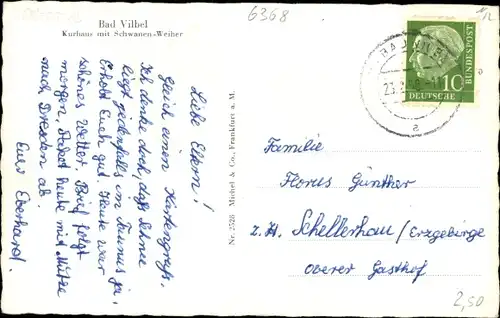 Bad Vilbel
Kurhaus mit Schwanen-Weiher
6368
Liebe Eltern!
Gleich einen Kartengruß.
Ich denke doch, daß Schnee
liegt jedenfalls im Taunus ja,
Erholt Euch gut. Heute war
schönes Wetter. Brief folgt
morgen, Paket heute mit Mütze
nach Dresden ab.
Euer Eberhard.
Nr. 2528 Michel & Co., Frankfurt a. M.
BAD VILBEL
23.2.
a
10
DEUTSCHE
BUNDESPOST
Familie
Florus Günther
z. Zt. Schellerhau/Erzgebirge
Oberer Gasthof
2,50